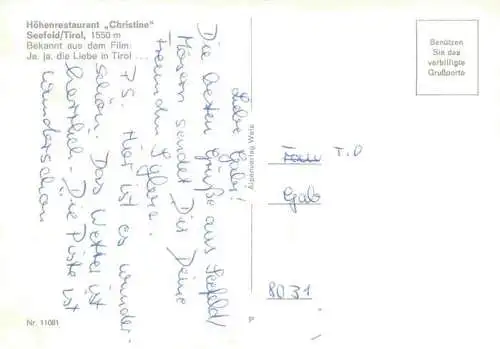 Höhenrestaurant „Christine"
Seefeld/Tirol, 1550 m
Bekannt aus dem Film:
Ja, ja, die Liebe in Tirol . . .
Benützen
Sie das
verbilligte
Grußporto
Liebe Gabi!
Die besten Grüße aus Seefeld/
Mösern sendet Dir Deine
Freundin
P.S. Hier ist es wunder-
schön. Das Wetter ist
herrlich - Die Piste ist
wunderschön
Alpenverlag Wels
T.D
Gab
8031
Nr. 11081
P